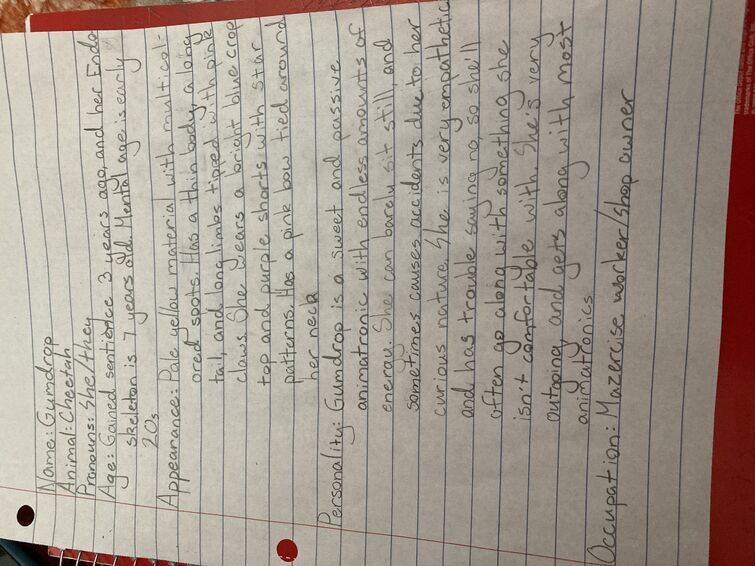 Name: Gumdrop
Animal: Cheetah
Pronouns: She/they
Age: Gained sentience 3 years ago, and her Endo
skeleton is 7 years old. Mental age is early
20s
Appearance: Pale yellow material with multicol-
ored spots. Has a thin body, a long
tail, and long limbs tipped with pink
claws. She wears a bright blue crop
top and purple shorts with star
patterns. Has a pink bow tied around
her neck
Personality: Gumdrop is a sweet and passive
animatronic with endless amounts of
energy. She can barely sit still, and
sometimes causes accidents due to her
curious nature. She is very empathetic
and has trouble saying no, so she'll
often go along with something she
isn't comfortable with. She's very
outgoing and gets along with most
animatronics
Occupation: Mazercise worker/shop owner